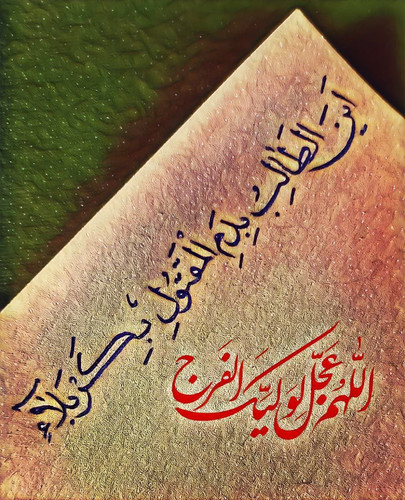 أَينَ الطَّالِبُ بِدَمِ المَقتُولِ بِكَربَلاءَ
اللّٰهُمَّ عَجِّل لِوَلیِّکَ الفَرَج